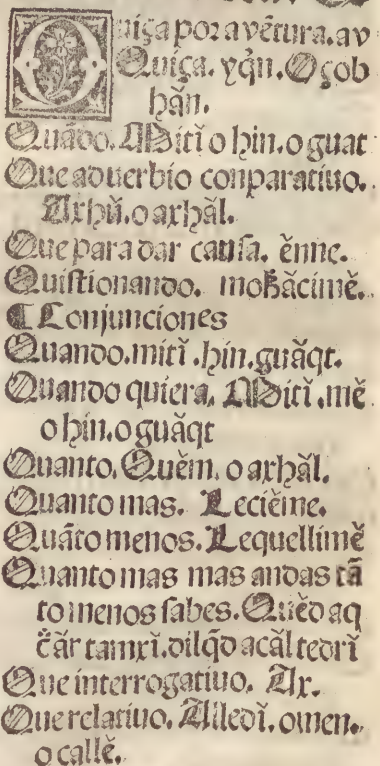 Quiça por avẽtura. av
Quiça. yq̃n. O gob
hãn.
Quãdo. Mitĩ o hin. o guat
Que aduerbio conparatiuo.
Axhũ. o axhãl.
Que para dar causa. ẽnne.
Quistionando. moħãcimẽ.
¶ Conjunciones
Quando. mitĩ. hin. guãqt.
Quando quiera. Mitĩ. mẽ
o hin. o guãqt
Quanto. Quẽm. o axhãl.
Quanto mas. Leciẽine.
Quãto menos. Lequellimẽ
Quanto mas mas andas tã
to menos sabes. Quẽd aq
c̃ãr tamxĩ. dilq̃d acãl tedrĩ
Que interrogatiuo. Ax.
Que relatiuo. Alledĩ. o men.
o callẽ.